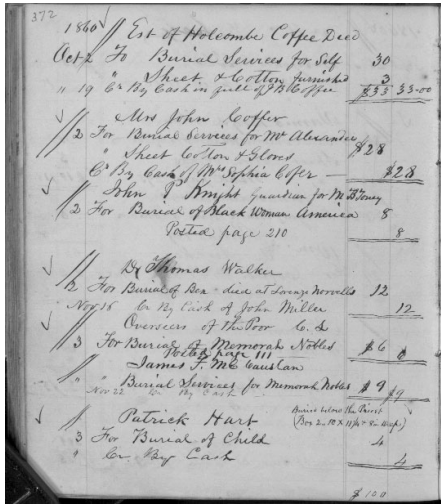 372
1860 Est of Holcombe Coffee Decd
Oct 2 To Burial Services for Self 30
" Sheet & Cotton furnished 3
" 19 Cr By Cash in full of J B Coffee $33 33-00
Mrs John Coffer
2 For Burial Services for Mr Alexander
" Sheet Cotton & Gloves $28
Cr By Cash of Mrs Sophia Cofer $28
John P Knight Guardian for M B Toney
2 For Burial of Black Woman America 8
Posted page 210 8
Dr Thomas Walker
2 For Burial of Ben died at Norvells 12
Nov 18 Cr By Cash of John Miller 12
Overseers of the Poor C. L
3 For Burial of Memorah Nobles $6 6
Posted page 111
James F. McCaustan
" Burial Services for Memorah Nobles $9
Nov 22 Cr By Cash $9
Patrick Hart
Buried below the
(Box 2.10 X 11 Deep)
3 For Burial of Child 4
" Cr By Cash 4
$100